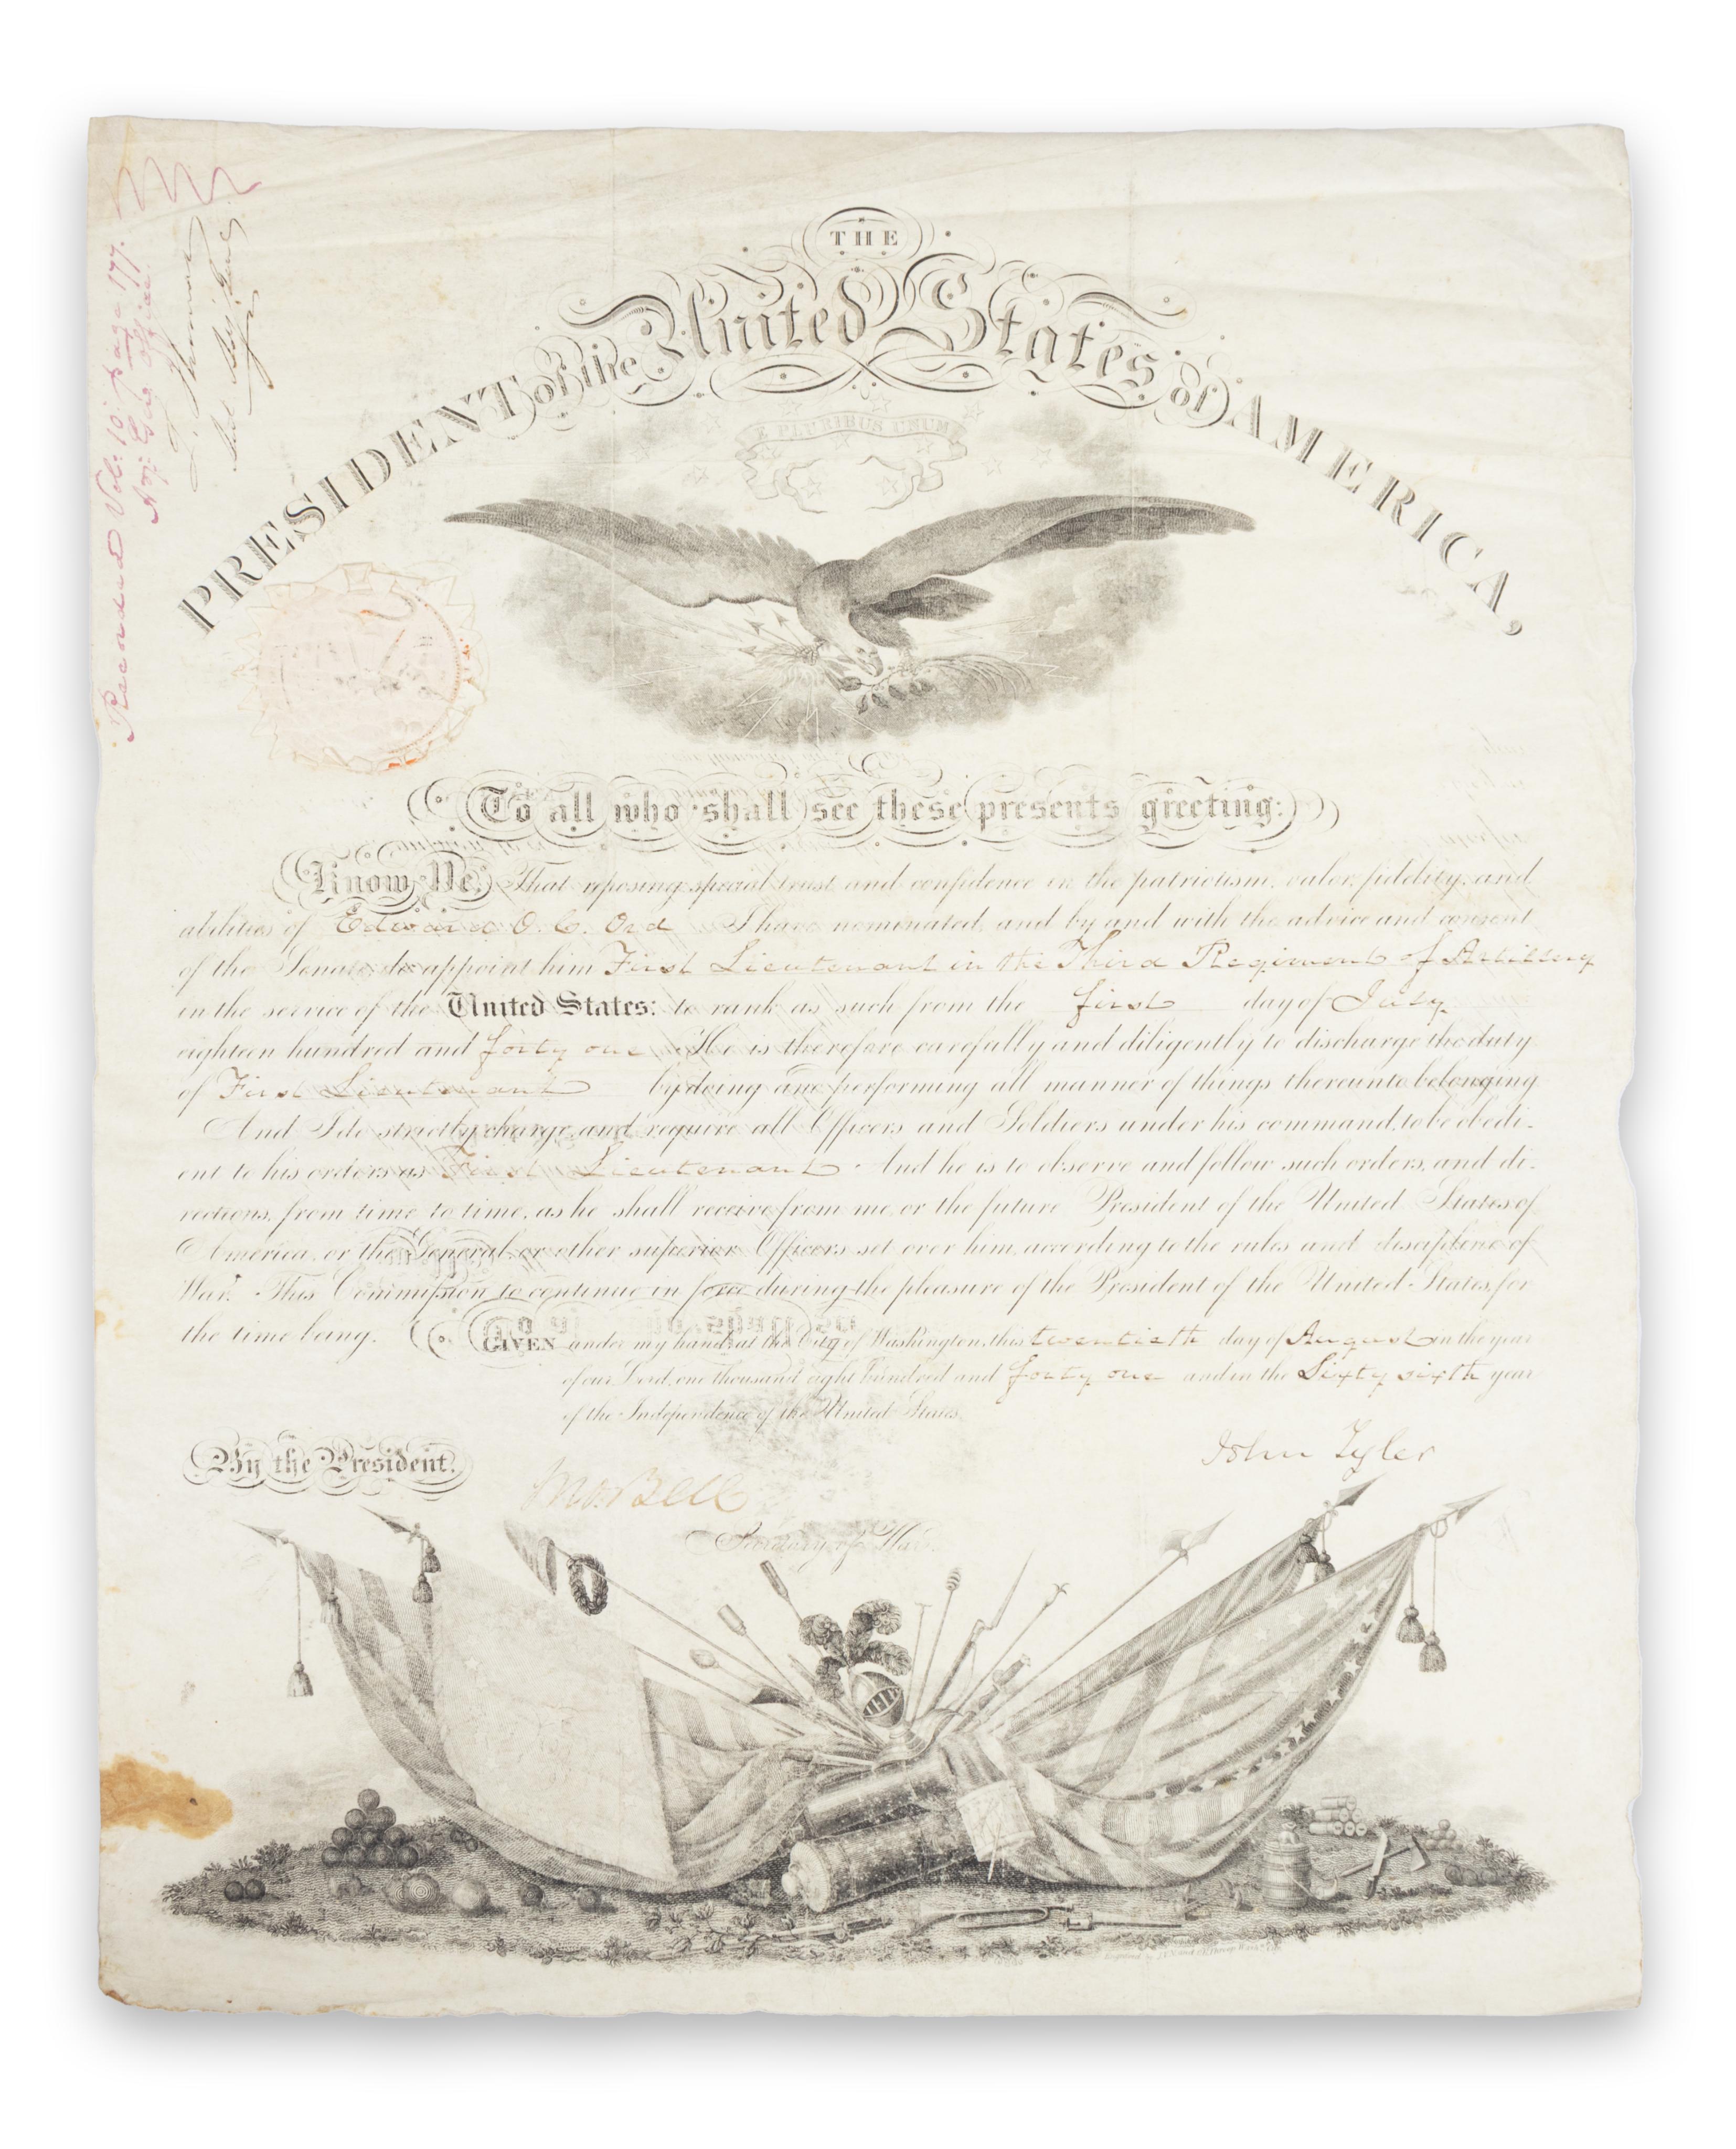 THE
PRESIDENT of the United States of AMERICA,
E PLURIBUS UNUM
Recorded Vol: 10 page 177.
Adj: Gen's Office.
L. Thomas
Asst Adj. Genl.
To all who shall see these presents greeting:
Know Ye, That reposing special trust and confidence in the patriotism, valor, fidelity, and
abilities of Edward O. C. Ord I have nominated, and by and with the advice and consent
of the Senate, do appoint him First Lieutenant in the Third Regiment of Artillery
in the service of the United States: to rank as such from the first day of July
eighteen hundred and forty one. He is therefore carefully and diligently to discharge the duty
of First Lieutenant by doing and performing all manner of things thereunto belonging
And I do strictly charge, and require all Officers and Soldiers under his command, to be obedi-
ent to his orders as First Lieutenant. And he is to observe and follow such orders, and di-
rections, from time to time, as he shall receive from me, or the future President of the United States of
America, or the General, or other superior Officers set over him, according to the rules and discipline of
War. This Commission to continue in force during the pleasure of the President of the United States, for
the time being.
GIVEN under my hand, at the City of Washington, this twentieth day of August in the year
of our Lord, one thousand eight hundred and forty one and in the Sixty sixth year
of the Independence of the United States.
By the President.
John Tyler
Jno Bell
Secretary of War.